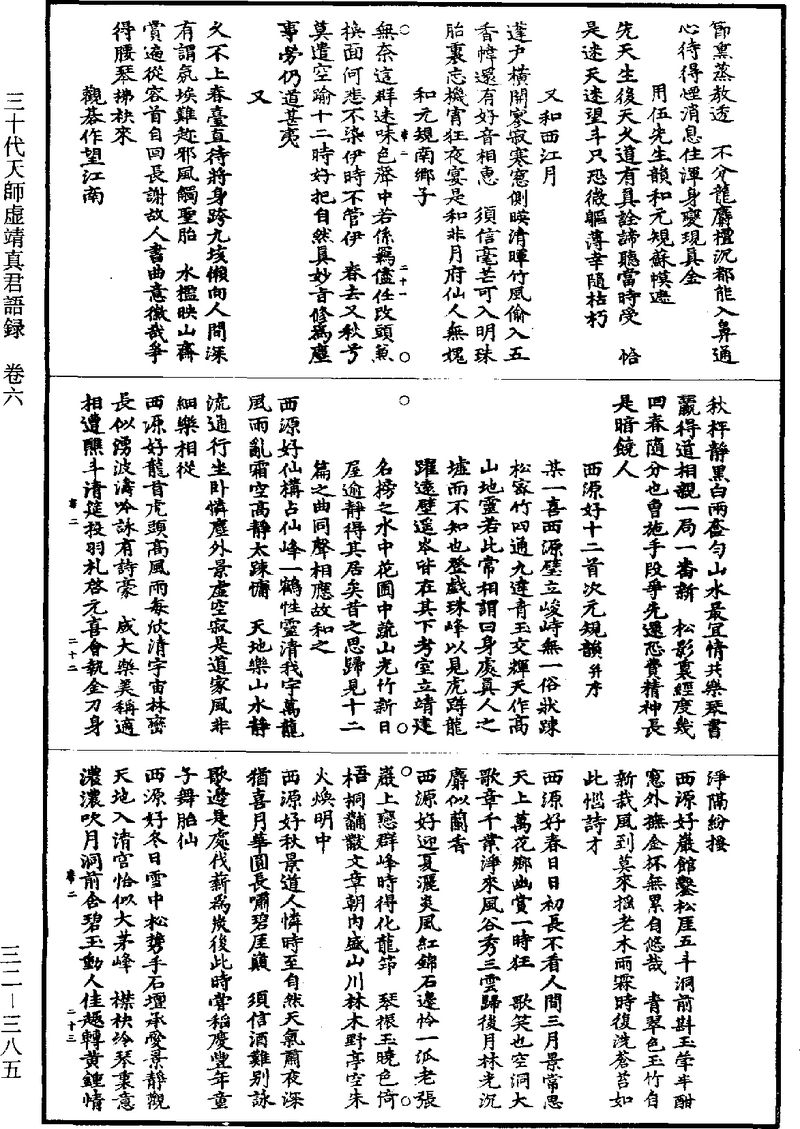 節熏蒸敖透　不分龍麝檀沉都能入鼻通
心待得煙消息住渾身變現真金
用伍先生韻和元規蘇幕遮
先天生後天乂道有真詮諦聽當時受　恰
是迷天迷望斗只恐微軀薄幸隨枯朽
又和西江月
蓬戶橫開寥寂寒窻側暎清暉竹風偷入五
香幃還有好音相惠　須信毫芒可入明珠
胎裏忘機宵狂夜宴是和非月府仙人無愧
和元規南鄉子
無奈這群迷味色聲中若係羈儘任改頭兼
換面何悲不染伊時不管伊　春去又秋兮
莫遣空踰十二時好把自然真妙旨修為塵
事勞仍道甚夷
又
久不上春臺直待將身跨九垓懶向人間深
有謂氛埃難起邪風觸聖胎　水檻映山齋
賞遍從容首自回長謝故人書曲意徽哉爭
得腰琴拂袂來
觀棊作望江南
秋枰靜黑白兩奩勻山水最宜情共樂琴書
贏得道相親一局一番新　松影裏經度幾
回春隨分也曾施手段爭先還恐費精神長
是暗饒人
西源好十二首次元規韻并序
某一喜西源壁立峻峙無一俗狀踈
松密竹四通九達青玉交輝天作高
山地靈若此常相謂曰身處真人之
墟而不知也登戲珠峰以見虎蹲龍
躍遠壁遥岑皆在其下考室立靖建
名榜之水中花圃中蔬山光竹新日
屋逾靜得其居矣昔之思歸見十二
篇之曲同聲相應故和之
西源好仙構占仙峰一鶴性靈清我宇萬龍
風雨亂霜空高靜太踈慵　天地樂山水靜
流通行坐卧憐塵外景虛空寂是道家風非
細樂相從
西源好龍首虎頭高風雨每欣清宇宙林巒
長似湧波濤吟詠有詩豪　咸大樂美稱適
相遭醮斗清筵投羽札啓元喜會執金刀身
淨隔紛挼
西源好巖館鑿松厓五斗洞前斟玉斝半酣
窻外撫金杯無累自悠哉　青翠色玉竹自
新栽風到莫來搖老木雨霖時復洗蒼苔如
此愜詩才
西源好春日日初長不看人間三月景常思
天上萬花鄉幽賞一時狂　歌笑也空洞大
歌章千葉淨來風谷秀三雲歸後月林光沉
麝似蘭香
西源好迎夏灑炎風紅錦石邊怜一派老張
巖上戀群峰時得化龍筇　琴振玉曉色倚
梧桐黼黻文章朝內盛山川林木野亭空朱
火煥明中
西源好秋景道人憐時至自然天氣肅夜深
猶喜月華圓長嘯碧厓巔　須信酒難别詠
歌邊是處伐薪為炭後此時嘗稻慶豐年童
子舞胎仙
西源好冬日雪中松携手石壇承愛景靜觀
天地入清宮恰似大茅峰　襟袂冷琴裏意
濃濃吹月洞前舍碧玉動人佳趣轉黄鍾情
三十代天師虛靖真君語録　卷六
三二—三八五
席二
二十一
席二
二十二
席二
二十三